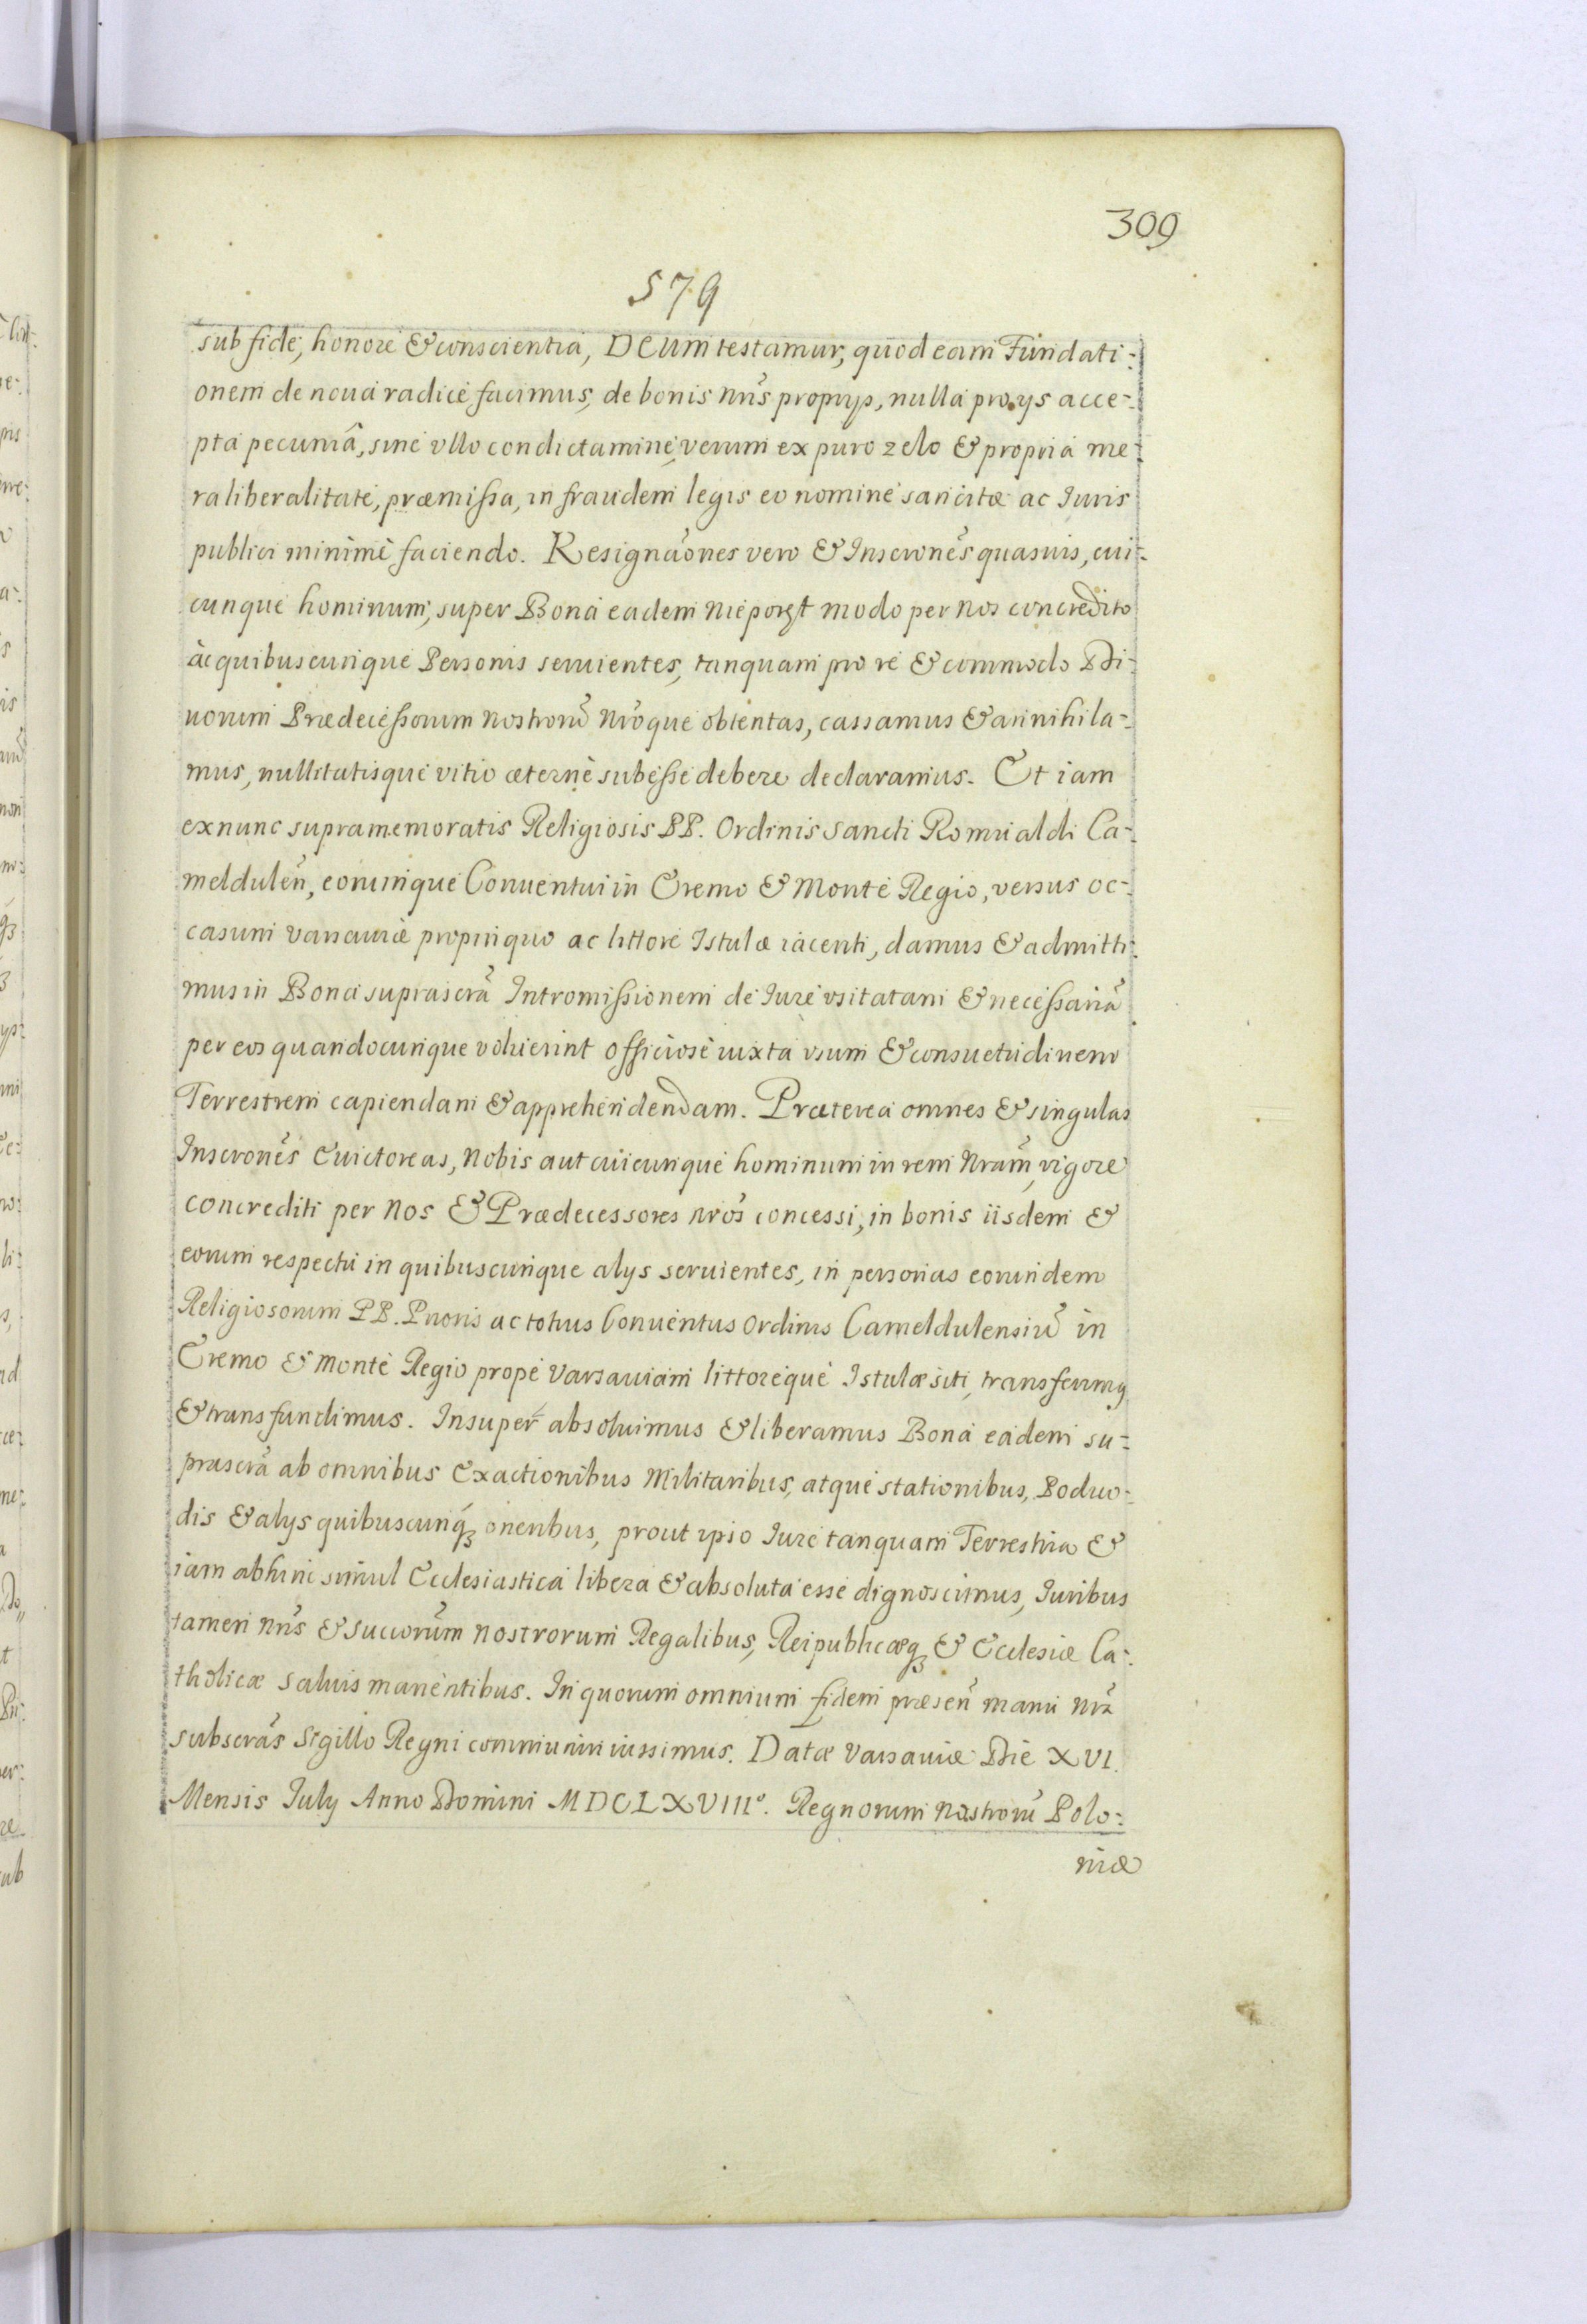 309
579
sub fide, honore & conscientia, DEUM testamur, quod eam Fundati-
onem de noua radice facimus, de bonis nr̃is proprijs, nulla pro ijs acce-
pta pecuniâ, sine vllo condictamine, verum ex puro zelo & propria me-
ra liberalitate, præmissa, in fraudem legis eo nomine sancitæ ac Juris
publici minimè faciendo. Resignãones vero & Inscrõnes quasuis, cui-
cunque hominum, super Bona eadem Nieporęt modo per nos concredito
àc quibuscunque Personis seruientes, tanquam pro re & commodo Di-
uorum Prædecessorum nostrorũ nr̃oque obtentas, cassamus & annihila-
mus, nullitatisque vitio æternè subesse debere declaramus. Et iam
ex nunc supramemoratis Religiosis PP. Ordinis Sancti Romualdi Ca-
meldulen̄, eorumque Conuentui in Eremo & Monte Regio, versus oc-
casum Varsauiæ propinquo ac littore Istulæ iacenti, damus & admitti-
mus in Bona suprascr̃a Intromissionem de Jure vsitatam & necessariã
per eos quandocunque voluerint officiosè iuxta vsum & consuetudinem
Terrestrem capiendam & apprehendendam. Præterea omnes & singulas
Inscrõnes Euictoreas, Nobis aut cuicunque hominum in rem Nrãm, vigore
concrediti per Nos & Prædecessores nr̃os concessi, in bonis iisdem &
eorum respectu in quibuscunque alys seruientes, in personas eorundem
Religiosorum PP. Prioris ac totius Conuentus Ordinis Cameldulensiũ in
Eremo & Monte Regio prope Varsauiam littoreque Istulæ siti, transferimq
& transfundimus. Insuper absoluimus & liberamus Bona eadem su-
prascr̃a ab omnibus Exactionibus Militaribus, atque stationibus, Poduo-
dis & alys quibuscunq₃ oneribus, prout ipso Jure tanquam Terrestria &
iam abhinc simul Ecclesiastica libera & absoluta esse dignoscimus, Juribus
tamen nr̃is & Succorũm nostrorum Regalibus, Reipublicæq₃ & Ecclesiæ Ca-
tholicæ saluis manentibus. In quorum omnium fidem præsen̄ manu nr̃a
subscrãs Sigillo Regni communiri iussimus. Datæ Varsauiæ Die XVI.
Mensis July Anno Domini MDCLXVIIIº. Regnorum nostrorũ Polo-
niæ